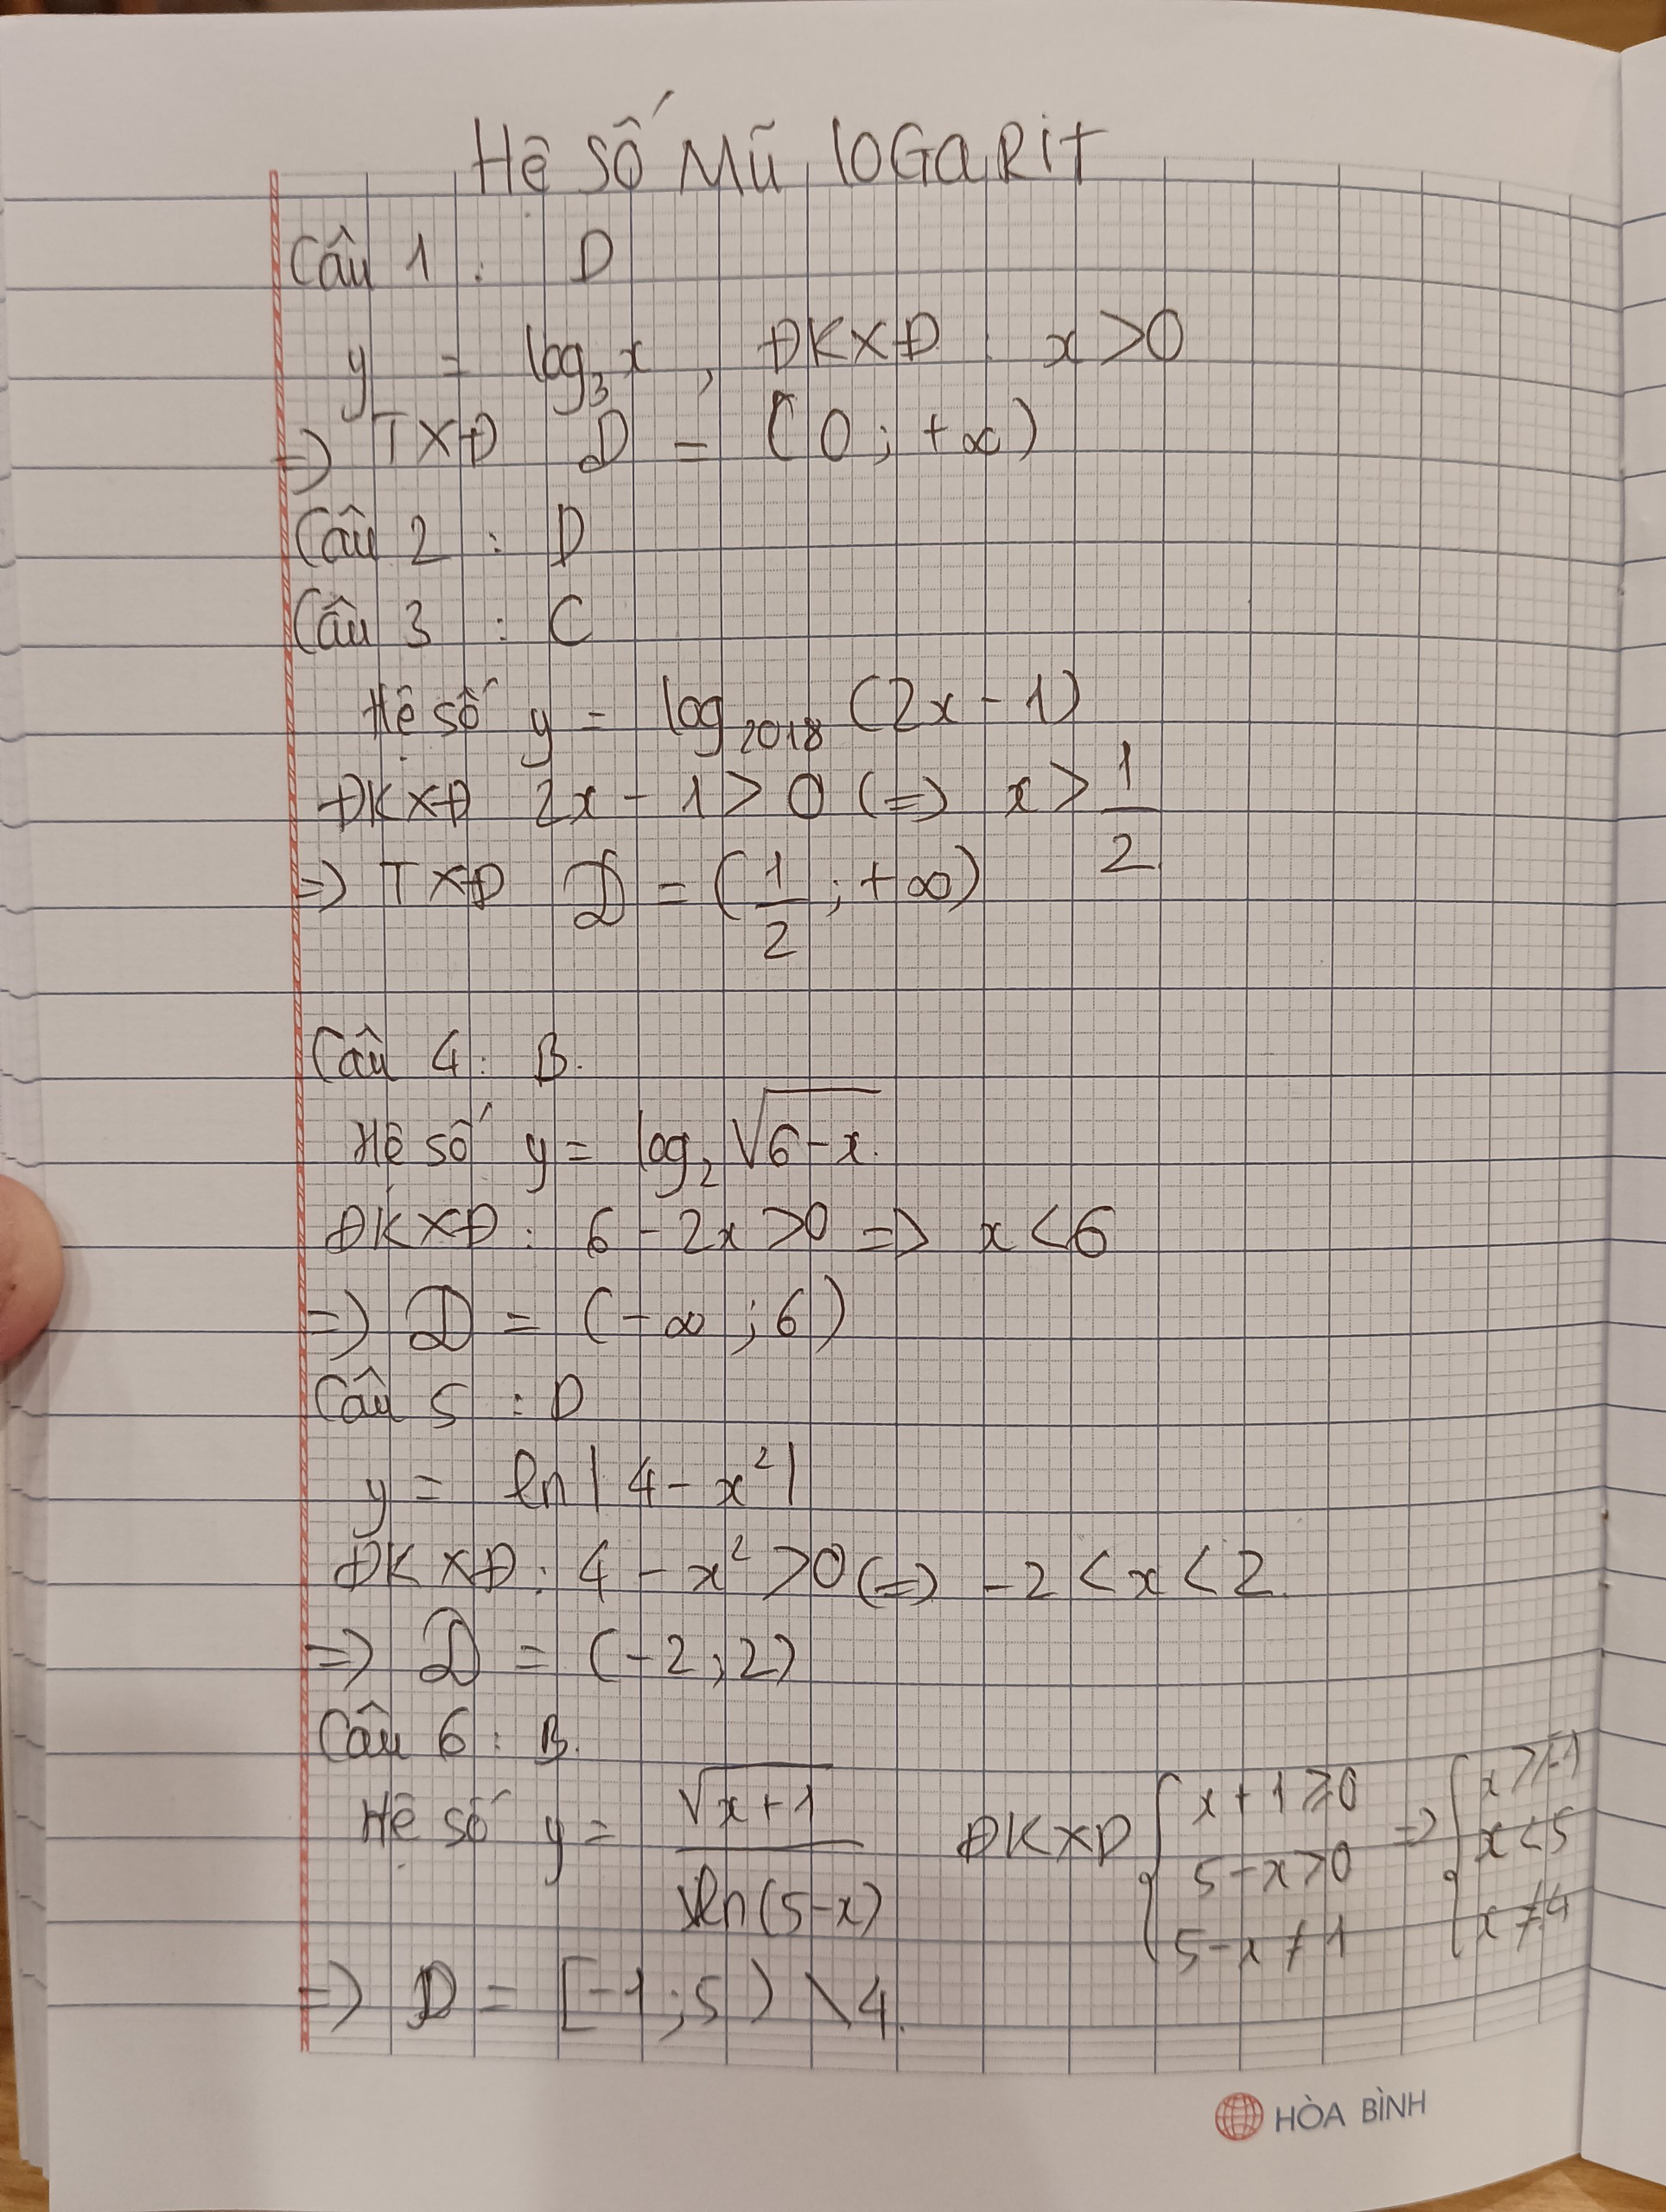 Hệ số Mũ lOGaRit
Câu 1 : D
y = log₃x , ĐKXĐ : x >0
=> TXĐ D = (0 ; +∞)
Câu 2 : D
Câu 3 : C
Hệ số y = log₂₀₁₈ (2x - 1)
ĐKXĐ 2x - 1 > 0 (=) x > 1/2
=> TXĐ D = (1/2 ; +∞)
Câu 4 : B.
Hệ số y = log₂ √(6-x)
ĐKXĐ : 6 - 2x >0 => x <6
=> D = (-∞ ; 6)
Câu 5 : D
y = ln|4 - x²|
ĐKXĐ : 4 - x² >0 (=) -2 < x < 2.
=> D = (-2 ; 2)
Câu 6 : B.
Hệ số y = √(x+1) / ln(5-x) ĐKXĐ { x + 1 ≥ 0 ; 5 - x > 0 ; 5 - x ≠ 1 => { x ≥ -1 ; x < 5 ; x ≠ 4
=> D = [-1 ; 5) \ 4.
HÒA BÌNH